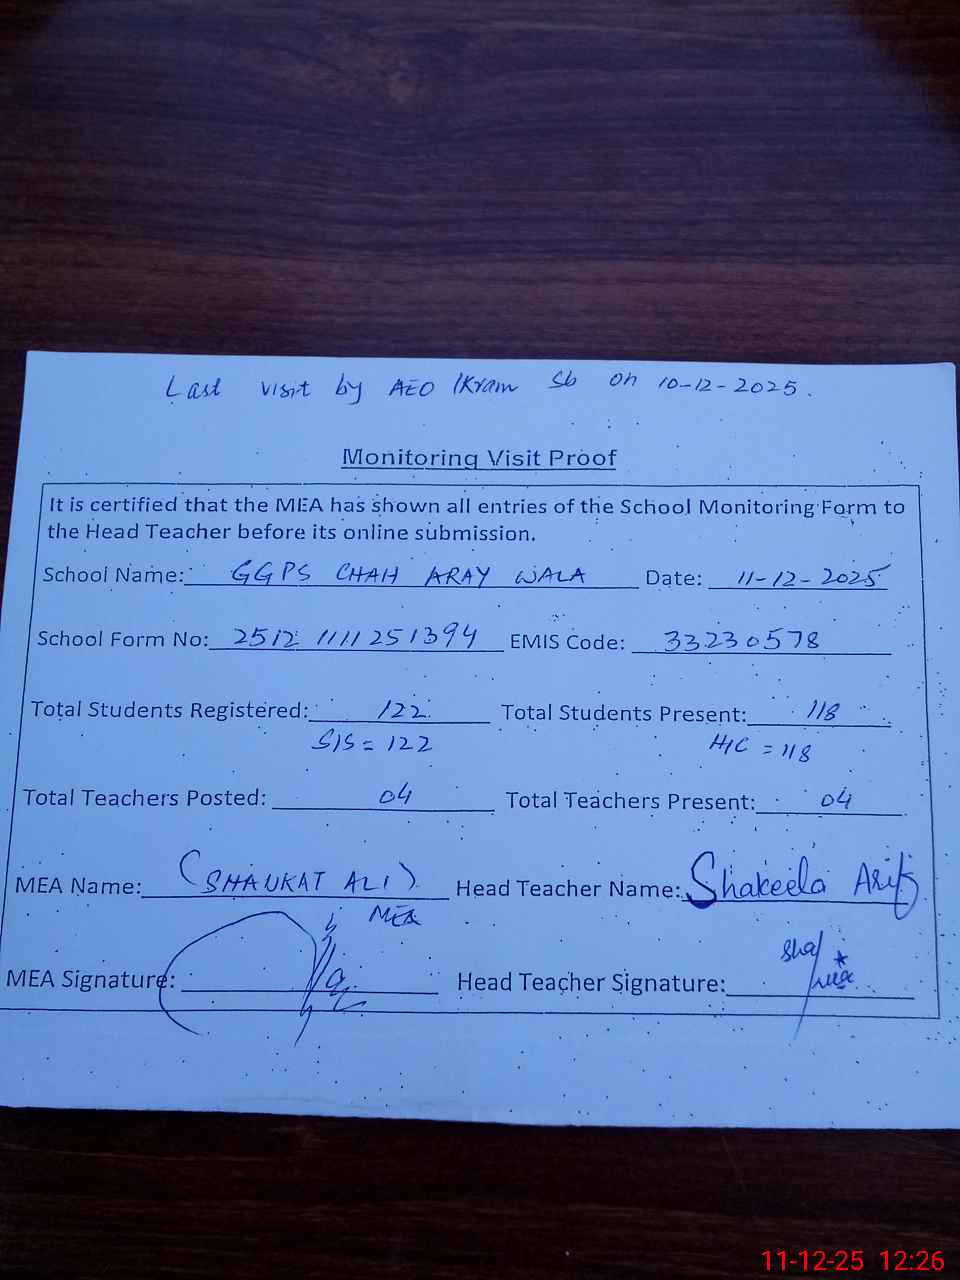 Last visit by AEO Ikram Sb on 10-12-2025.
Monitoring Visit Proof
It is certified that the MEA has shown all entries of the School Monitoring Form to
the Head Teacher before its online submission.
School Name: GGPS CHAH ARAY WALA Date: 11-12-2025
School Form No: 2512 1111251394 EMIS Code: 33230578
Total Students Registered: 122 Total Students Present: 118
SIS = 122 H/C = 118
Total Teachers Posted: 04 Total Teachers Present: 04
MEA Name: (SHAUKAT ALI) Head Teacher Name: Shakeela Arif
MEA
MEA Signature: Head Teacher Signature:
11-12-25 12:26